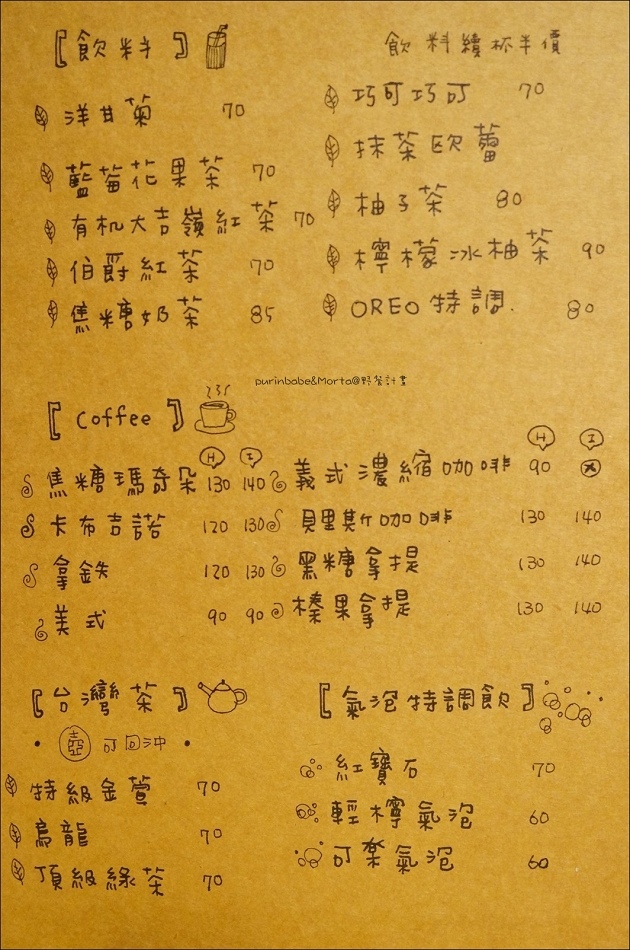 【飲料】
飲料續杯半價
洋甘菊 70
藍莓花果茶 70
有机大吉嶺紅茶 70
伯爵紅茶 70
焦糖奶茶 85
巧可巧可 70
抹茶欧蕾
柚子茶 80
檸檬冰柚茶 90
OREO特調. 80
purinbabe&Morta@野餐計畫
【Coffee】
H I
焦糖瑪奇朵 130 140
卡布吉諾 120 130
拿鉄 120 130
美式 90 90
H I
義式濃縮咖啡 90 X
貝里斯咖啡 130 140
黑糖拿提 130 140
榛果拿提 130 140
【台灣茶】
• 壺 可回沖 •
特級金萱 70
烏龍 70
頂級綠茶 70
【氣泡特調飲】
紅寶石 70
輕檸氣泡 60
可樂氣泡 60